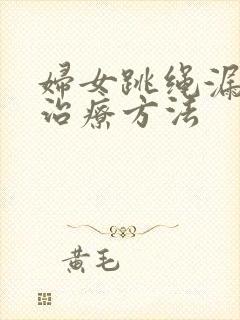 婦女跳绳漏
治療方法
黄毛